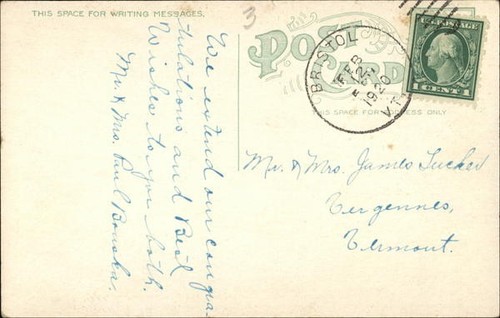 THIS SPACE FOR WRITING MESSAGES.
3
POST CARD
THIS SPACE FOR ADDRESS ONLY
BRISTOL
FEB
1920
VT.
U.S. POSTAGE
1 CENT 1
We extend our congra-
tulations and Best
Wishes to you both.
Mr. & Mrs.
Mr. & Mrs. James Tucker
Vergennes,
Vermont.